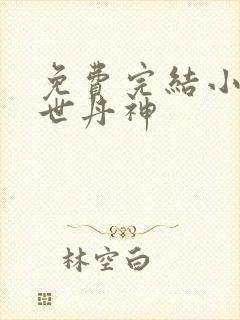 免費完結小
世丹神
林空白